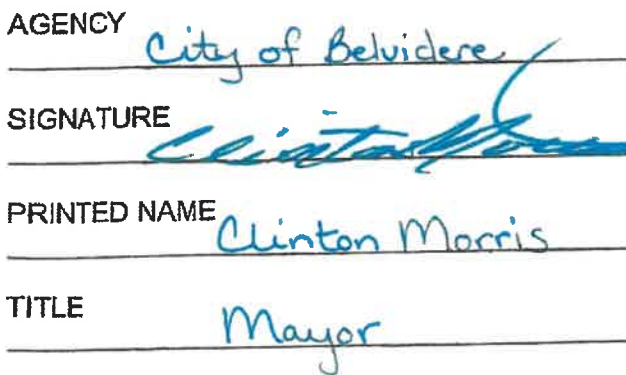 AGENCY City of Belvidere
SIGNATURE Clinton Morris
PRINTED NAME Clinton Morris
TITLE Mayor